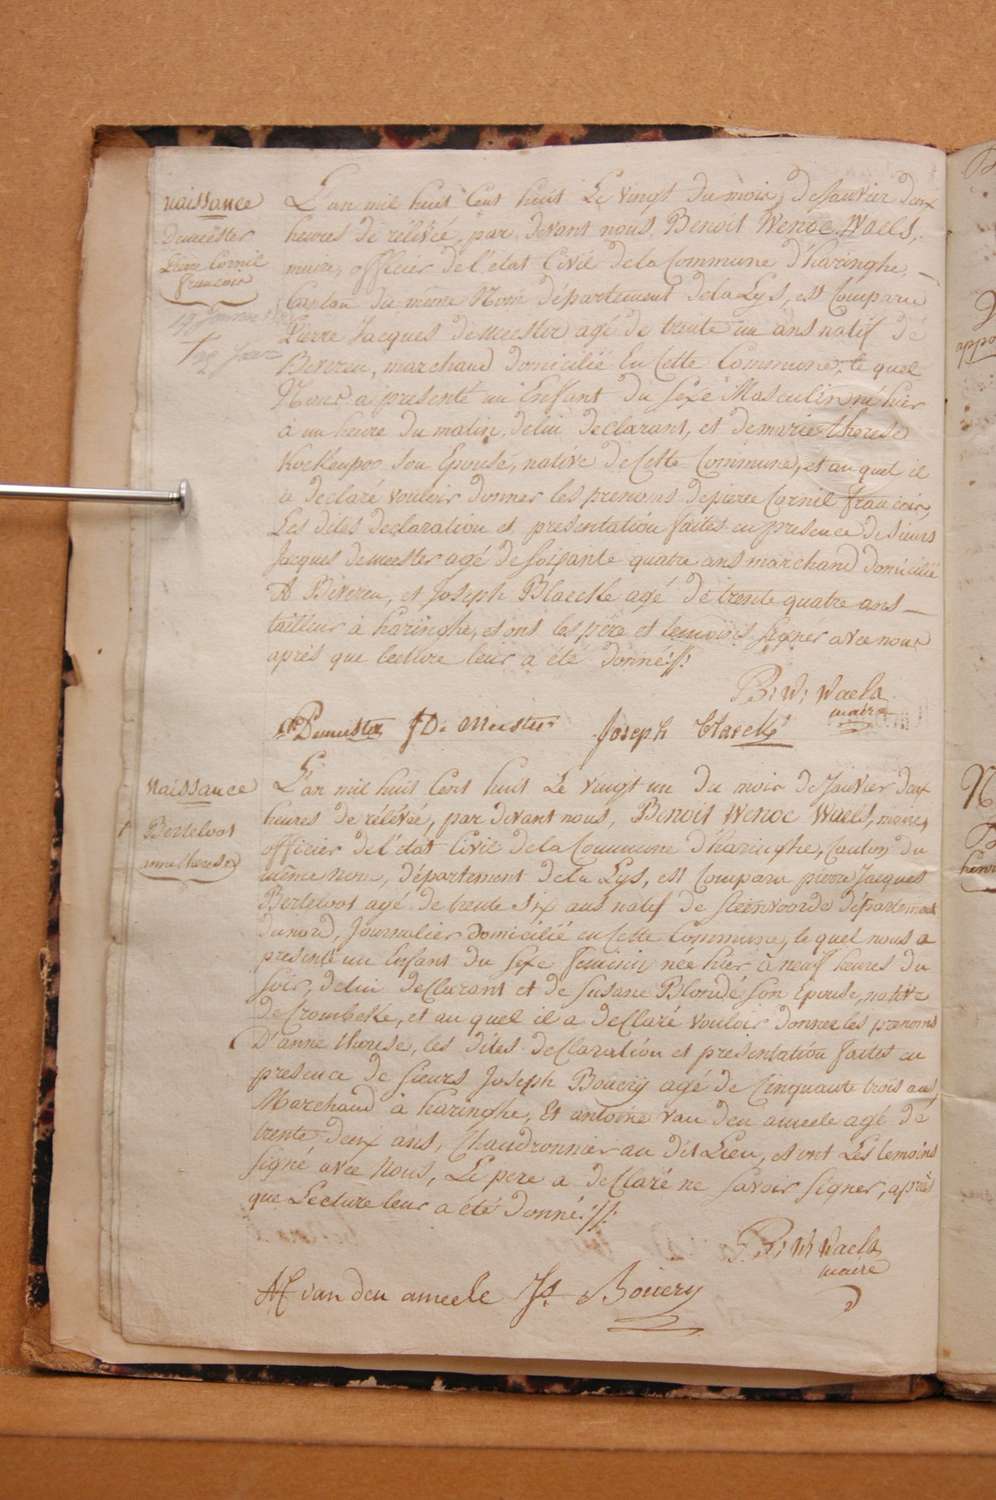 naissance
Demeester
Pierre Cornil
francois
19 Janvier
L'an mil huit Cent huit Le vingt du mois de Janvier deux
heures de rélévée, par devant nous, Benoit Wenoc Waels,
maire, officier de l'état Civil de la Commune d'haringhe,
Canton du même Nom département de la Lys, est Comparu
Pierre Jacques demeester agé de trente un ans natif de
Beveren, marchand domicilié En Cette Commune, le quel
Nous a présenté un Enfant du sexe Masculin, né hier
a un heure du matin, de lui déclarant, et de marie therese
son Epouse, native de Cette Commune, et au quel il
a déclaré vouloir donner les prenoms de pierre Cornil francois,
Les dites declaration et presentation faites en presence de Sieurs
Jacques demeester agé de soixante quatre ans marchand domicilié
A Beveren, et Joseph Blaeckе agé de trente quatre ans
tailleur à haringhe, et ont les père et temoins signer avec nous
après que lecture leur a été donné ./.
B: W: Waels
maire
Demeester J De Meester Joseph Blaecke
naissance
Berteloot
anne therese
L'an mil huit Cent huit Le vingt un du mois de Janvier deux
heures de rélévée, par devant nous, Benoit Wenoc Waels, maire,
officier de l'état Civil de la Commune d'haringhe, Canton du
même nom, département de la Lys, est Comparu pierre Jacques
Berteloot agé de trente six ans natif de steenvoorde département
du nord, Journalier domicilié en Cette Commune, le quel nous a
présenté un Enfant du sexe feminin née hier à neuf heures du
soir, de lui declarant et de Susane Blondé son Epouse, native
de Crombeke, et au quel il a déclaré vouloir donner les prenoms
d'anne therese, les dites declaration et presentation faites en
presence de sieurs Joseph Bouery agé de Cinquante trois ans,
Marchand à haringhe, Et antoine van den ameele agé de
trente deux ans, Chaudronnier au dit Lieu, et ont Les témoins
signé avec Nous, Le pere a déclaré ne savoir signer, après
que Lecture leur a été donné ./.
B: W: Waels
maire
van den ameele Js. Bouery